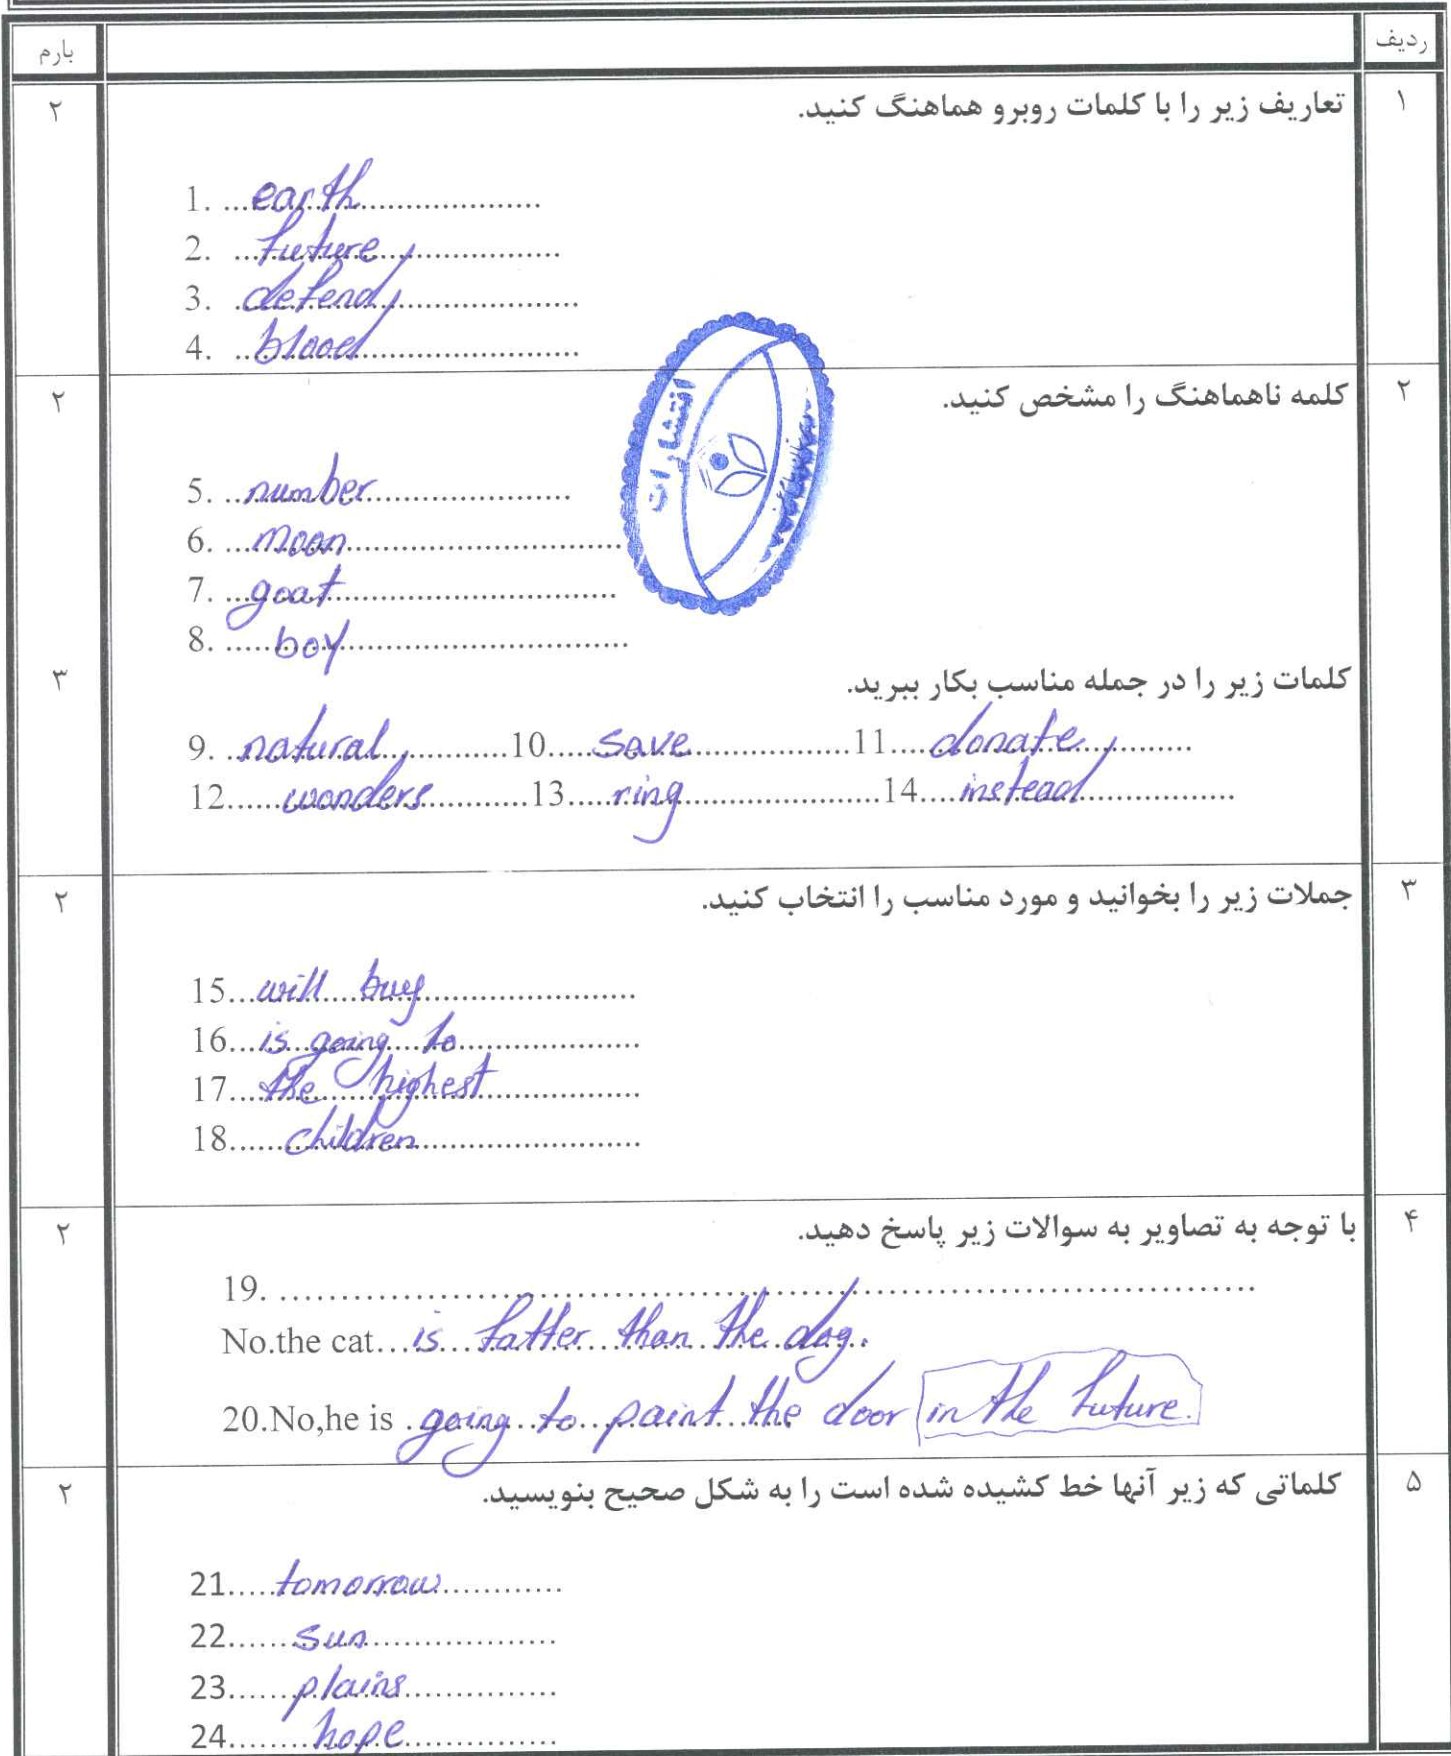 ردیف بارم
۱ تعاریف زیر را با کلمات روبرو هماهنگ کنید. ۲
1. ...earth...
2. ...future...
3. ...defend...
4. ...blood...
۲ کلمه ناهماهنگ را مشخص کنید. ۲
انتشارات
5. ...number...
6. ...moon...
7. ...goat...
8. ...boy...
کلمات زیر را در جمله مناسب بکار ببرید. ۳
9. ...natural...10...save...11...donate...
12...wonders...13...ring...14...instead...
۳ جملات زیر را بخوانید و مورد مناسب را انتخاب کنید. ۲
15...will buy...
16...is going to...
17...the highest...
18...children...
۴ با توجه به تصاویر به سوالات زیر پاسخ دهید. ۲
19. ...
No.the cat...is fatter than the dog.
20.No,he is .going to paint the door in the future.
۵ کلماتی که زیر آنها خط کشیده شده است را به شکل صحیح بنویسید. ۲
21...tomorrow...
22...sun...
23...plains...
24...hope...